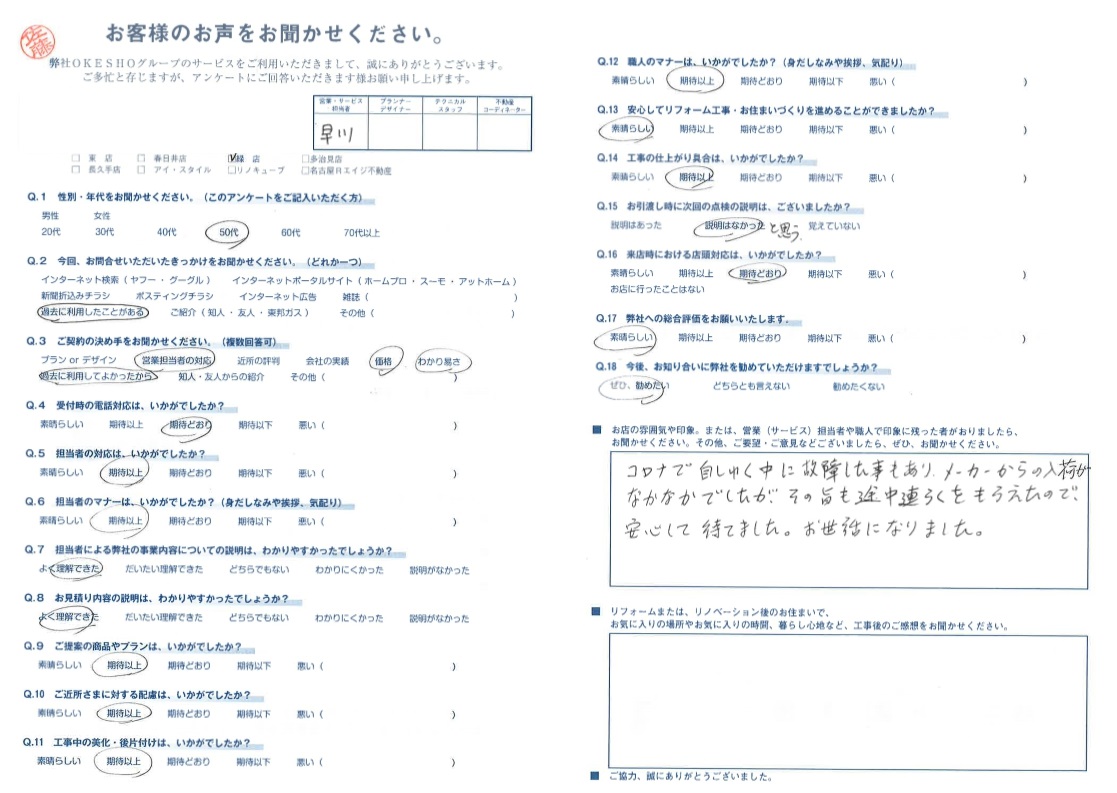 佐藤
お客様のお声をお聞かせください。
弊社OKESHOグループのサービスをご利用いただきまして、誠にありがとうございます。
ご多忙と存じますが、アンケートにご回答いただきます様お願い申し上げます。
営業・サービス担当者 プランナーデザイナー テクニカルスタッフ 不動産コーディネーター
早川
□ 東 店 □ 春日井店 ☑緑 店 □多治見店
□ 長久手店 □ アイ・スタイル □リノキューブ □名古屋Rエイジ不動産
Q.1 性別・年代をお聞かせください。（このアンケートをご記入いただく方）
男性 女性
20代 30代 40代 50代 60代 70代以上
Q.2 今回、お問合せいただいたきっかけをお聞かせください。（どれか一つ）
インターネット検索（ ヤフー ・ グーグル ） インターネットポータルサイト（ ホームプロ ・ スーモ ・ アットホーム ）
新聞折込みチラシ ポスティングチラシ インターネット広告 雑誌（ ）
過去に利用したことがある ご紹介（ 知人 ・ 友人 ・ 東邦ガス ） その他（ ）
Q.3 ご契約の決め手をお聞かせください。（複数回答可）
プラン or デザイン 営業担当者の対応 近所の評判 会社の実績 価格 わかり易さ
過去に利用してよかったから 知人・友人からの紹介 その他（ ）
Q.4 受付時の電話対応は、いかがでしたか？
素晴らしい 期待以上 期待どおり 期待以下 悪い（ ）
Q.5 担当者の対応は、いかがでしたか？
素晴らしい 期待以上 期待どおり 期待以下 悪い（ ）
Q.6 担当者のマナーは、いかがでしたか？（身だしなみや挨拶、気配り）
素晴らしい 期待以上 期待どおり 期待以下 悪い（ ）
Q.7 担当者による弊社の事業内容についての説明は、わかりやすかったでしょうか？
よく理解できた だいたい理解できた どちらでもない わかりにくかった 説明がなかった
Q.8 お見積り内容の説明は、わかりやすかったでしょうか？
よく理解できた だいたい理解できた どちらでもない わかりにくかった 説明がなかった
Q.9 ご提案の商品やプランは、いかがでしたか？
素晴らしい 期待以上 期待どおり 期待以下 悪い（ ）
Q.10 ご近所さまに対する配慮は、いかがでしたか？
素晴らしい 期待以上 期待どおり 期待以下 悪い（ ）
Q.11 工事中の美化・後片付けは、いかがでしたか？
素晴らしい 期待以上 期待どおり 期待以下 悪い（ ）
Q.12 職人のマナーは、いかがでしたか？（身だしなみや挨拶、気配り）
素晴らしい 期待以上 期待どおり 期待以下 悪い（ ）
Q.13 安心してリフォーム工事・お住まいづくりを進めることができましたか？
素晴らしい 期待以上 期待どおり 期待以下 悪い（ ）
Q.14 工事の仕上がり具合は、いかがでしたか？
素晴らしい 期待以上 期待どおり 期待以下 悪い（ ）
Q.15 お引渡し時に次回の点検の説明は、ございましたか？
説明はあった 説明はなかった と思う 覚えていない
Q.16 来店時における店頭対応は、いかがでしたか？
素晴らしい 期待以上 期待どおり 期待以下 悪い（ ）
お店に行ったことはない
Q.17 弊社への総合評価をお願いいたします。
素晴らしい 期待以上 期待どおり 期待以下 悪い（ ）
Q.18 今後、お知り合いに弊社を勧めていただけますでしょうか？
ぜひ、勧めたい どちらとも言えない 勧めたくない
■ お店の雰囲気や印象。または、営業（サービス）担当者や職人で印象に残った者がおりましたら、
お聞かせください。その他、ご要望・ご意見などございましたら、ぜひ、お聞かせください。
コロナで自しゅく中に故障した事もあり、メーカーからの入荷が
なかなかでしたが、その旨も途中連らくをもらえたので、
安心して待てました。お世話になりました。
■ リフォームまたは、リノベーション後のお住まいで、
お気に入りの場所やお気に入りの時間、暮らし心地など、工事後のご感想をお聞かせください。
■ ご協力、誠にありがとうございました。